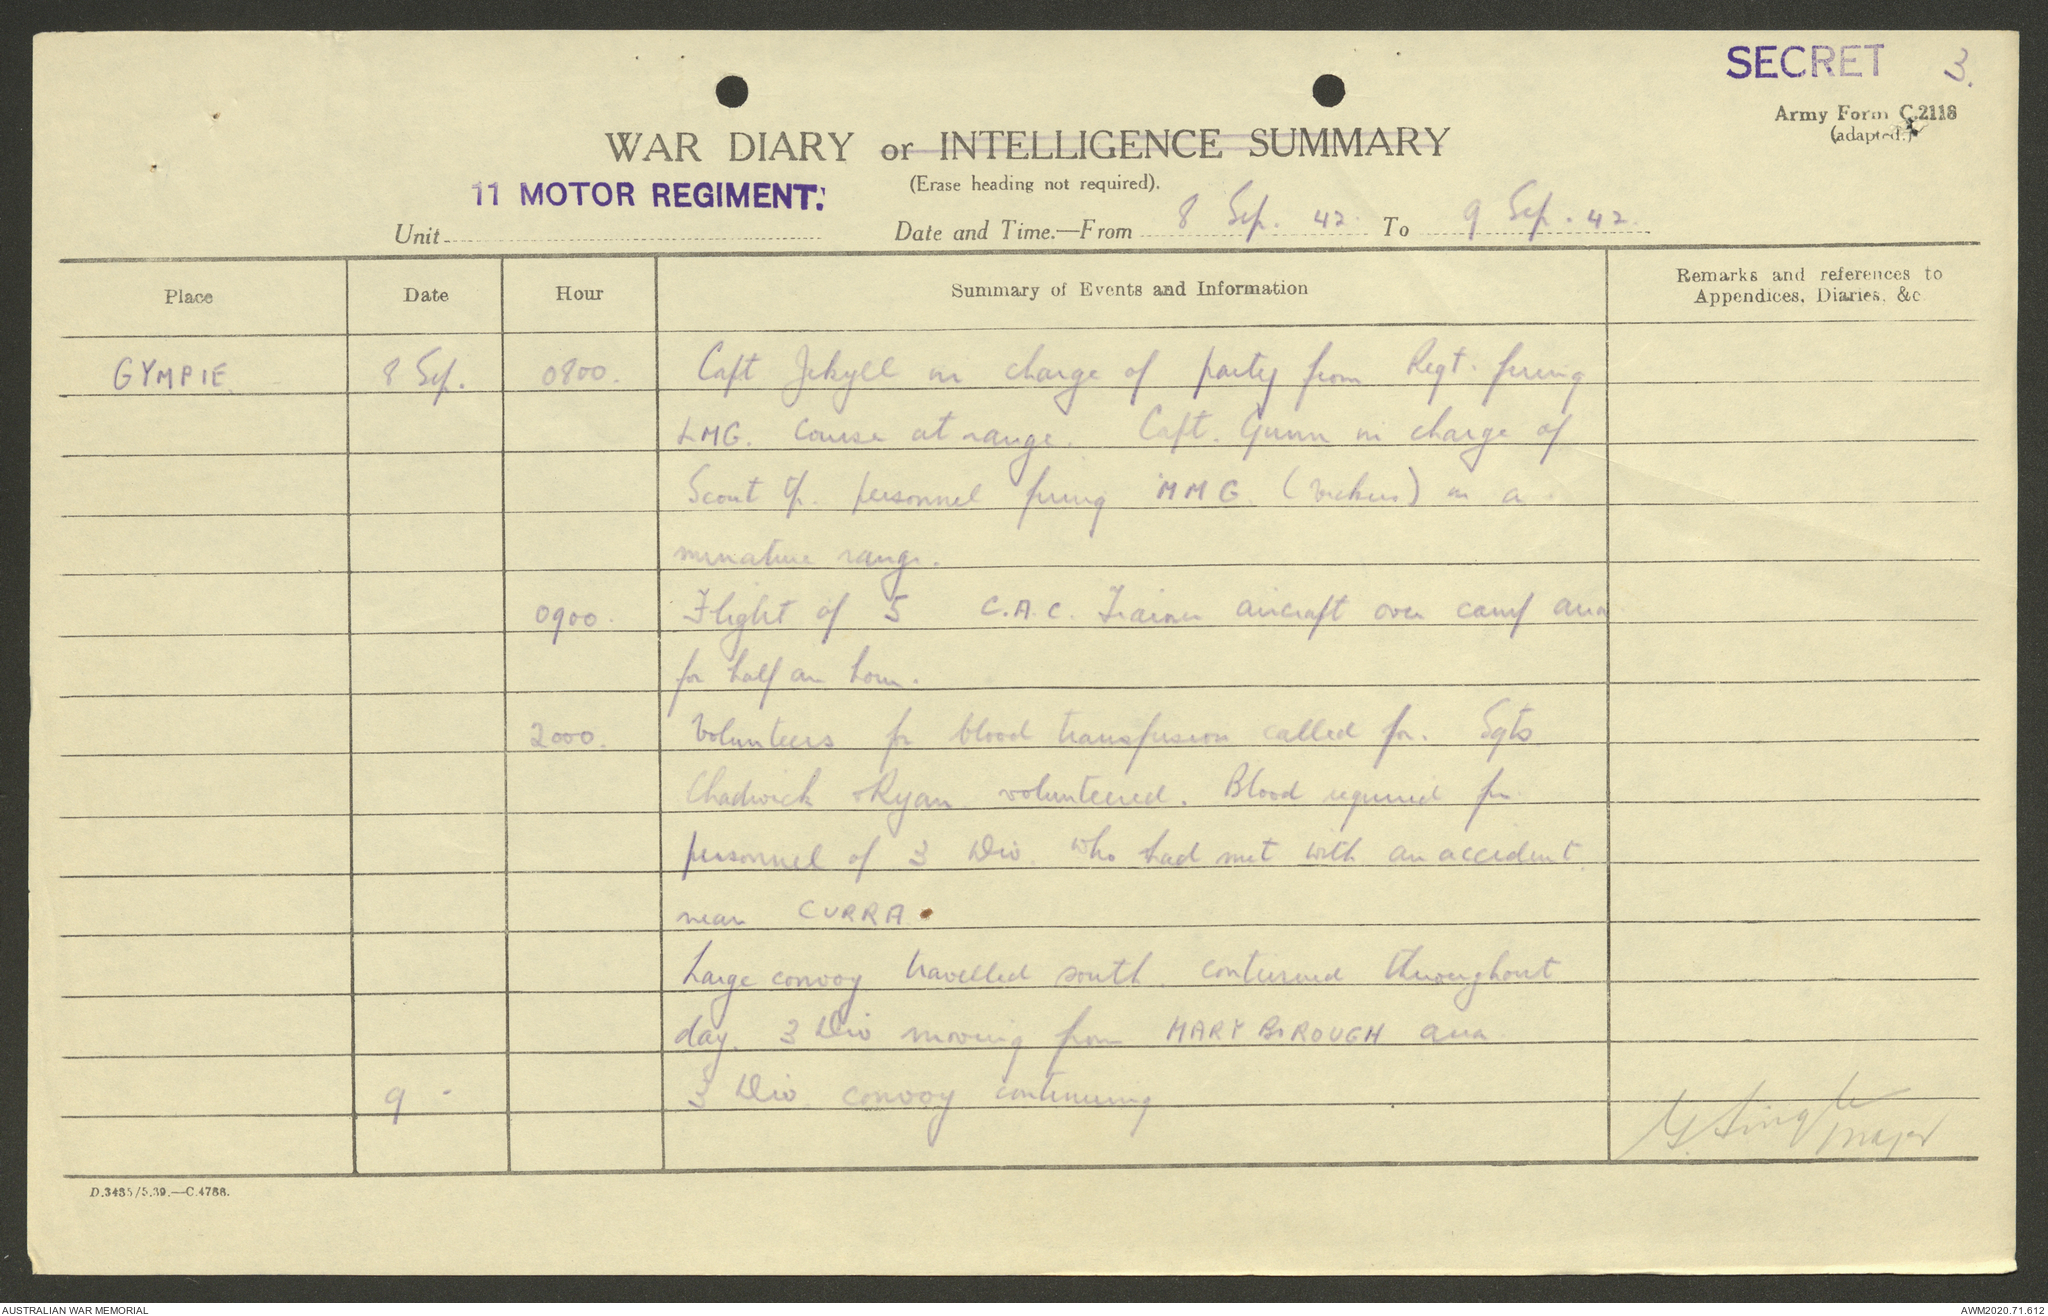 SECRET 3.
Army Form C.2118
(adapted.)
WAR DIARY or INTELLIGENCE SUMMARY
(Erase heading not required).
11 MOTOR REGIMENT.
Unit
Date and Time.—From 8 Sep. 42. To 9 Sep. 42.
Place Date Hour Summary of Events and Information Remarks and references to
Appendices, Diaries, &c
GYMPIE 8 Sep. 0800. Capt Jekyll in charge of party from Regt. firing
LMG. Course at range. Capt. Gunn in charge of
Scout tp. personnel firing MMG (Vickers) on a
miniature range.
0900. Flight of 5 C.A.C. Trainer aircraft over camp area
for half an hour.
2000. Volunteers for blood transfusion called for. Sgts
Chadwick & Ryan volunteered. Blood required for
personnel of 3 Div. who had met with an accident
near CURRA.
Large convoy travelled south. continued throughout
day. 3 Div moving from MARYBOROUGH area.
9 - 3 Div. convoy continuing
Single
Major
D.3435/5.39.—C.4788.
AUSTRALIAN WAR MEMORIAL
AWM2020.71.612